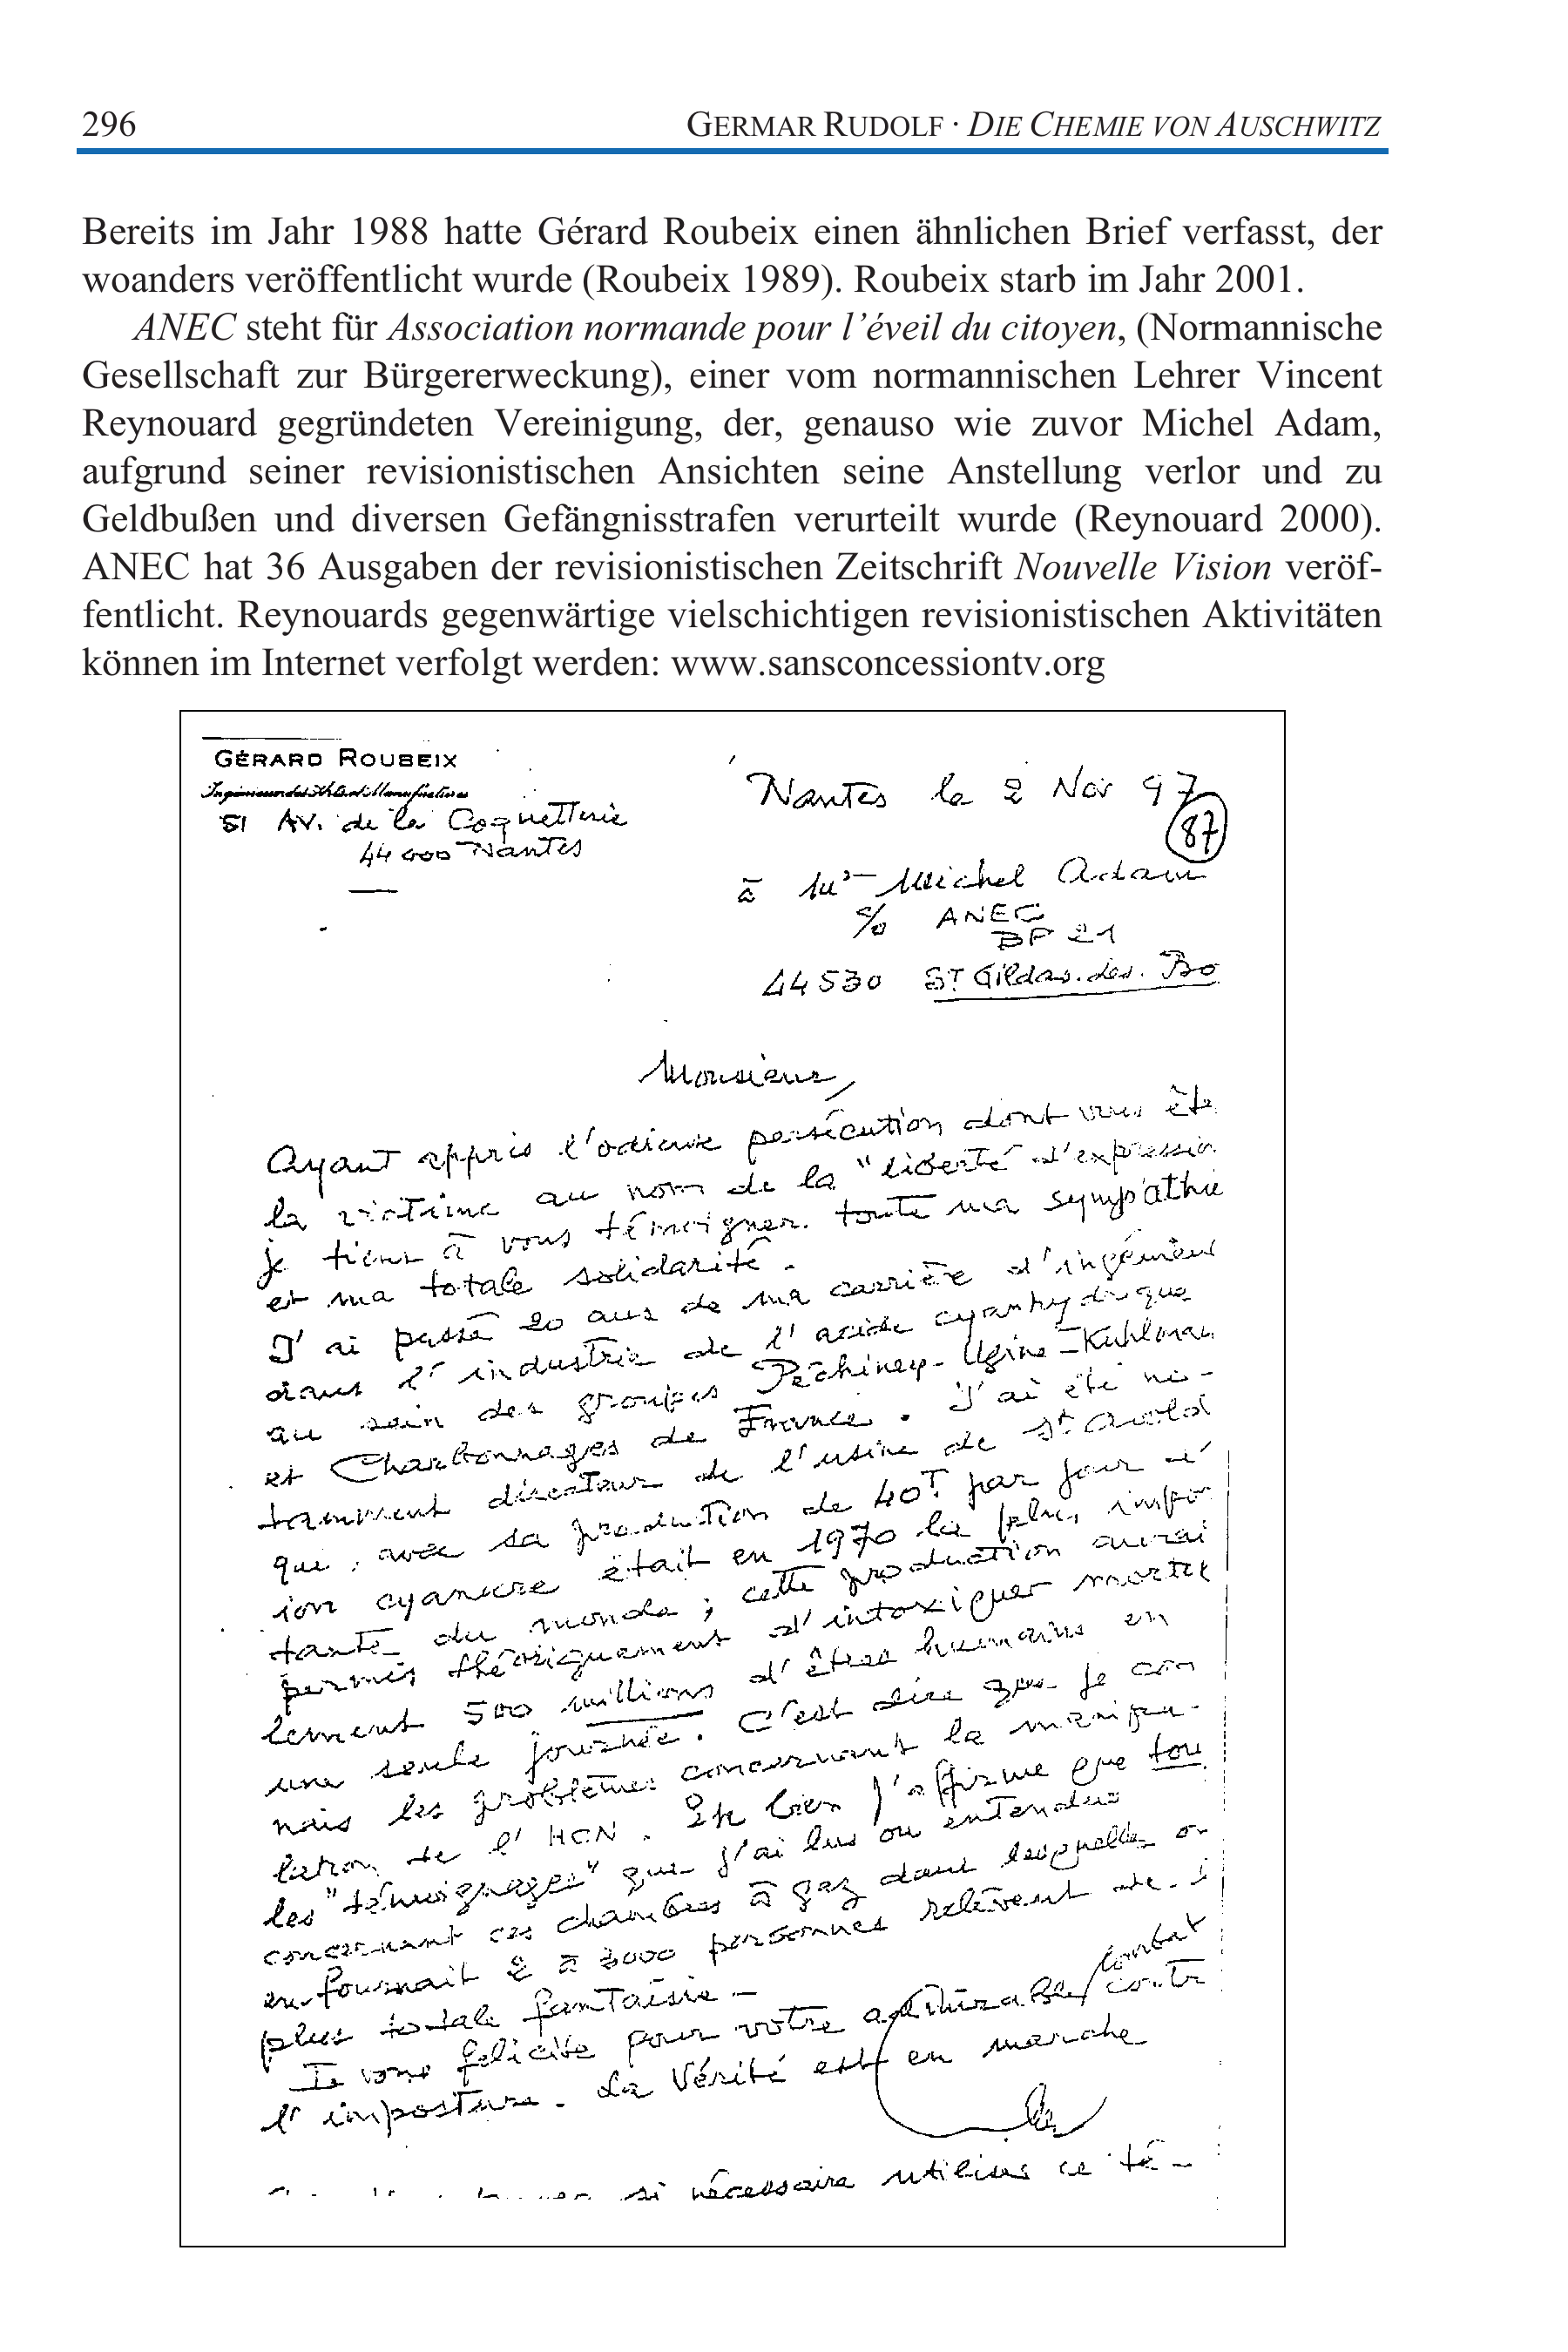 296
GERMAR RUDOLF · DIE CHEMIE VON AUSCHWITZ
Bereits im Jahr 1988 hatte Gérard Roubeix einen ähnlichen Brief verfasst, der
woanders veröffentlicht wurde (Roubeix 1989). Roubeix starb im Jahr 2001.
ANEC steht für Association normande pour l’éveil du citoyen, (Normannische
Gesellschaft zur Bürgererweckung), einer vom normannischen Lehrer Vincent
Reynouard gegründeten Vereinigung, der, genauso wie zuvor Michel Adam,
aufgrund seiner revisionistischen Ansichten seine Anstellung verlor und zu
Geldbußen und diversen Gefängnisstrafen verurteilt wurde (Reynouard 2000).
ANEC hat 36 Ausgaben der revisionistischen Zeitschrift Nouvelle Vision veröf-
fentlicht. Reynouards gegenwärtige vielschichtigen revisionistischen Aktivitäten
können im Internet verfolgt werden: www.sansconcessiontv.org
GÉRARD ROUBEIX
51 AV. de la Coquetterie
44000 Nantes
Nantes le 2 Nov 97
87
à Mr Michel Adam
c/o ANEC
BP 21
44530 ST Gildas.des.Bo
Monsieur,
Ayant appris l'odieuse persécution dont vous ête
la victime au nom de la "liberté d'expression
je tiens à vous témoigner toute ma sympathie
et ma totale solidarité.
J'ai passé 20 ans de ma carrière d'ingénieur
dans l'industrie de l'acide cyanhydrique
au sein des groupes Péchiney-Ugine-Kuhlman
et Charbonnages de France. J'ai été no-
tamment directeur de l'usine de St Avold
qui, avec sa production de 40T par jour d'
ion cyanure était en 1970 la plus impor
tante du monde ; cette production aurai
permis théoriquement d'intoxiquer mortel
lement 500 millions d'êtres humains en
une seule journée. C'est dire que je con
nais les problèmes concernant la manipu-
lation de l'HCN. Eh bien j'affirme que tou
les "témoignages" que j'ai lus ou entendus
concernant ces chambres à gaz dans lesquelles on
enfournait 2 à 3000 personnes relèvent de l
plus totale fantaisie -
Je vous félicite pour votre admirable combat contr
l'imposture. La Vérité est en marche
si nécessaire utiliser ce té-